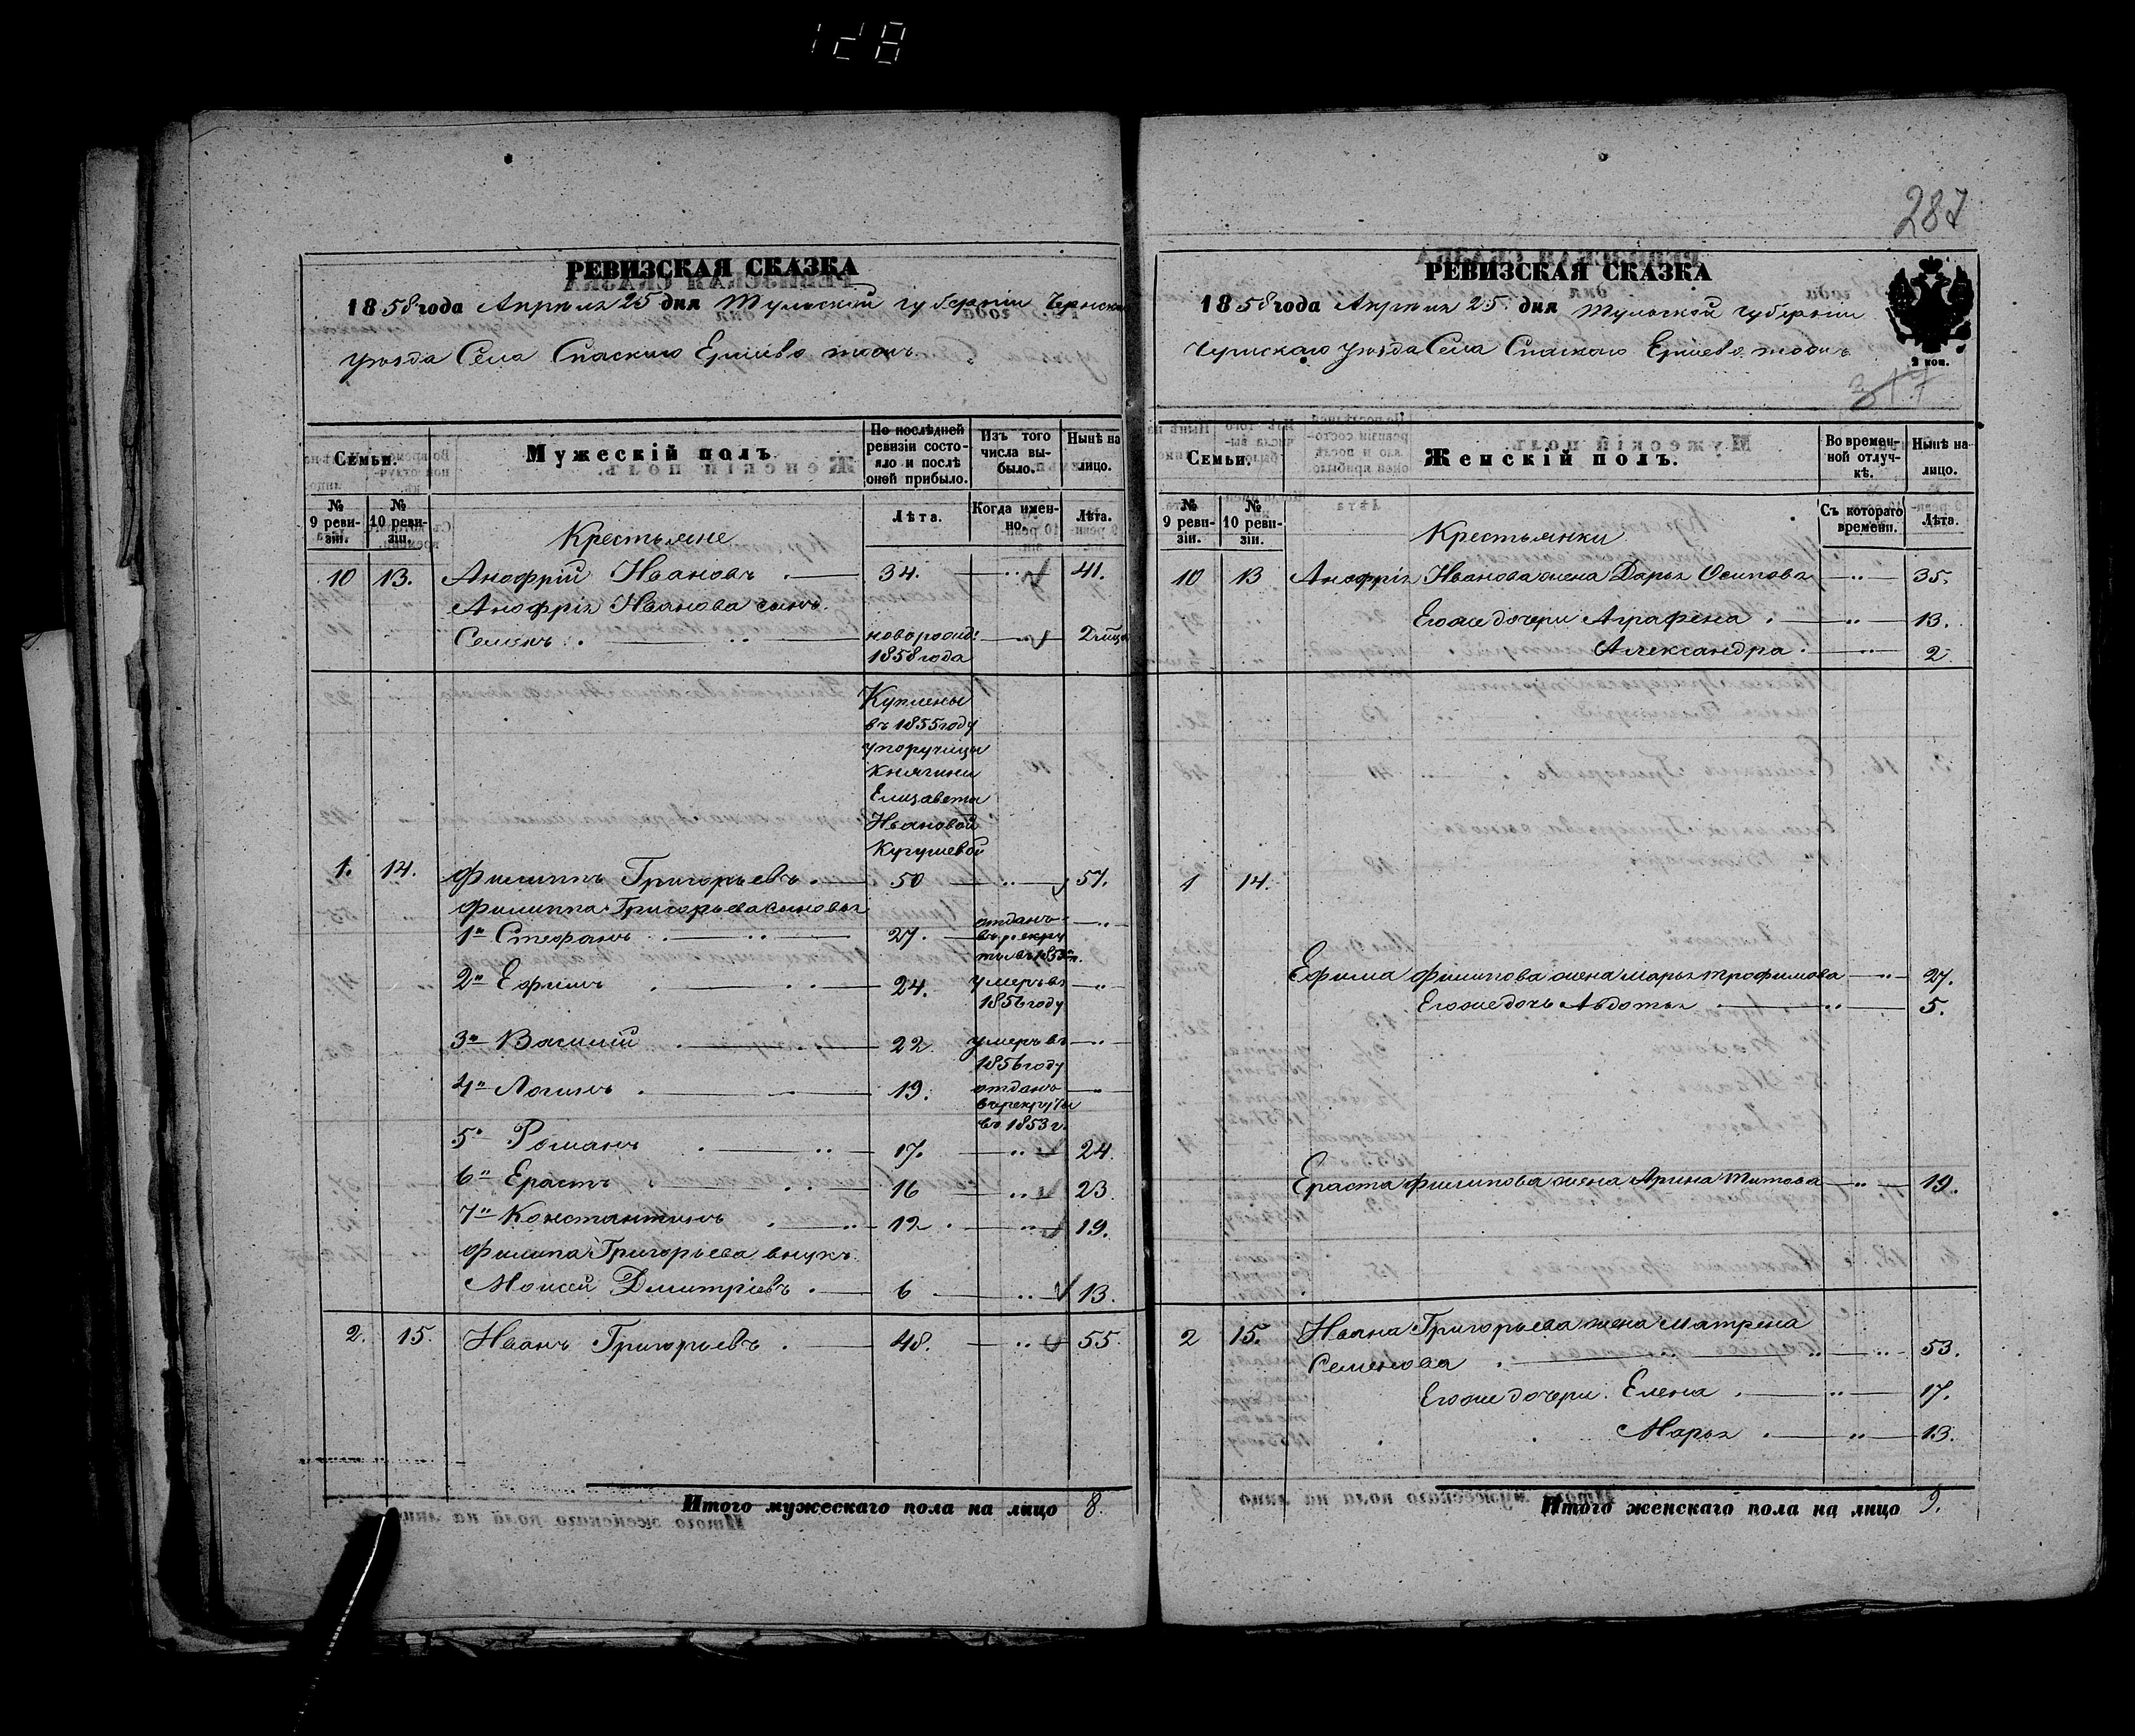 128
РЕВИЗСКАЯ СКАЗКА
1858 года Апрѣля 25 дня Тульской губерніи Чернскаго
уѣзда Села Спаскаго Ершево тожъ.
Семьи.
Мужескій полъ.
По послѣдней ревизіи состояло и послѣ оной прибыло.
Изъ того числа выбыло.
Нынѣ на лицо.
№ 9 ревизіи.
№ 10 ревизіи.
Крестьяне
Лѣта.
Когда именно.
Лѣта.
10 13. Анофрій Ивановъ . — 34. — .. 41.
Анофрія Иванова сынъ.
Семенъ . — .. — новорожд: — .. —
1858 года
Куплены
въ 1855 году
у поручицы
Княгини
Елизаветы
Ивановой
Кугушевой
1. 14. Филиппъ Григорьевъ . — 50 — .. — 57.
Филиппа Григорьева сыновья
1й Стефанъ . — .. — 27. отданъ в рекруты — .. —
2й Ефимъ . — .. — 24. умеръ въ 1856 году — .. —
3й Василій . — .. — 22. умеръ въ 1856 году — .. —
4й Логинъ . — .. — 19. отданъ в рекруты въ 1853 г. — .. —
5й Романъ . — .. — 17. — .. — 24.
6й Ерастъ . — .. — 16 — .. — 23.
7й Константинъ . — .. — 12 . — .. — 19.
Филипа Григорьева внукъ.
Моисей Дмитріевъ . — 6 — .. — 13.
2. 15. Иванъ Григорьевъ . — 48. — .. — 55.
Итого мужескаго пола на лицо 8.
287
РЕВИЗСКАЯ СКАЗКА
1858 года Апрѣля 25. дня Тульской Губерніи
Чернскаго Уѣзда Села Спаскаго Ершево тожъ
2 коп.
317
Семьи.
Женскій полъ.
Во временной отлучкѣ.
Нынѣ на лицо.
№ 9 ревизіи.
№ 10 ревизіи.
Крестьянки
Съ котораго времени.
Лѣта.
10 13 Анофрія Иванова жена Дарья Осипова — .. — 35.
Его же дочери Аграфена . — .. — 13.
Александра . — .. — 2
1 14.
Ефима Филипова жена Марья Трофимова — .. — 27.
Его же дочь Авдотья . — .. — 5.
Ераста Филипова жена Арина Титова — .. — 19.
2 15. Ивана Григорьева жена Матрена
Семенова . — .. — 53.
Его же дочери. Елена . — .. — 17.
Марья . — .. — 13.
Итого женскаго пола на лицо 9.